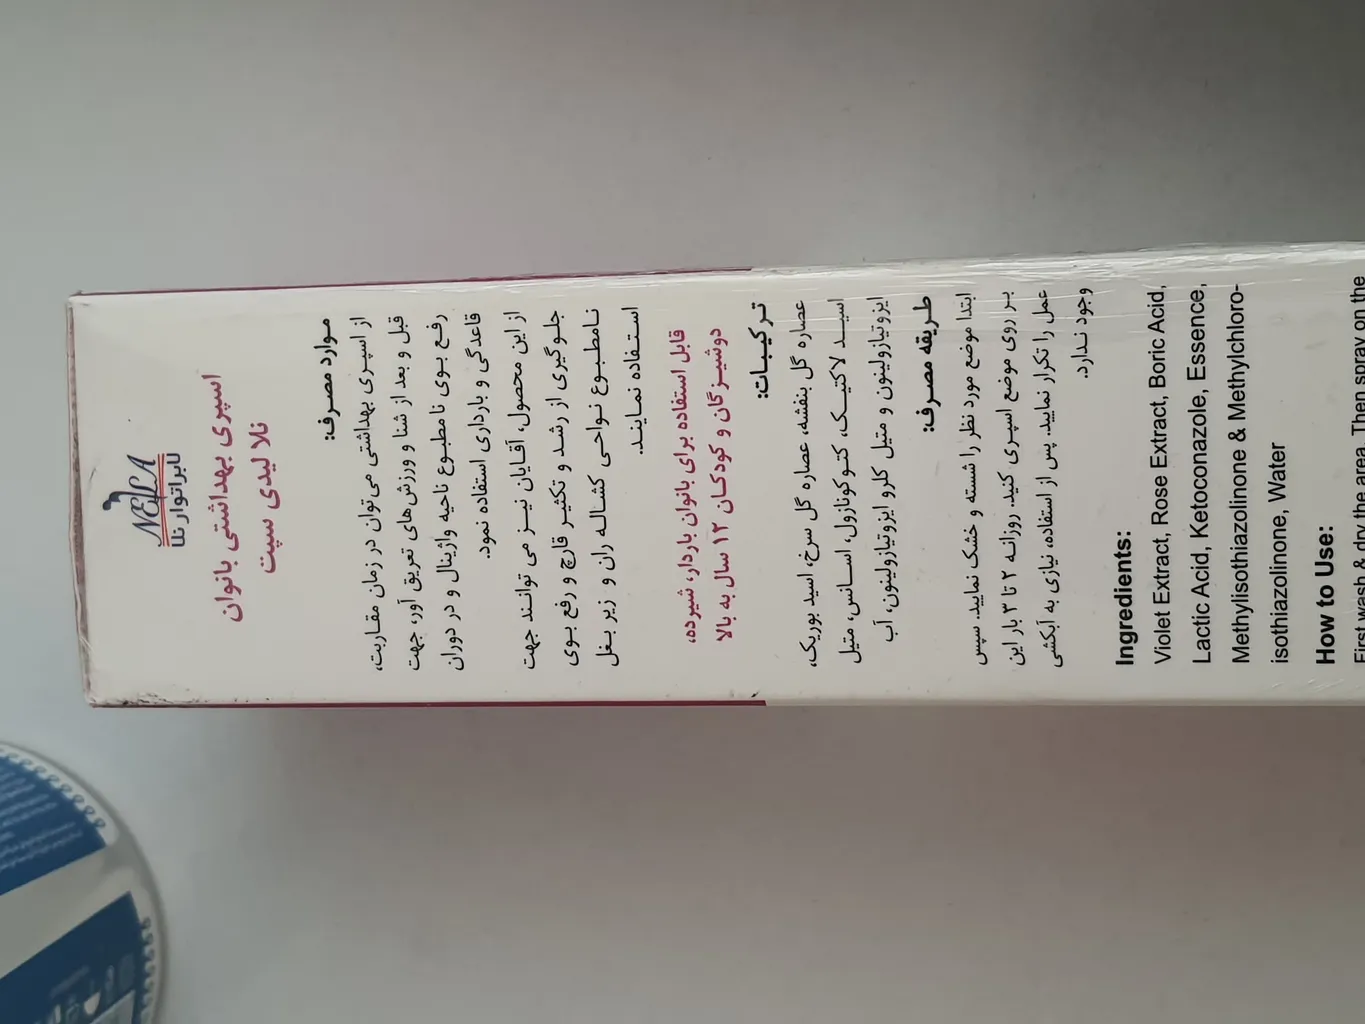 NELLA
لابراتوار نلا
اسپری بهداشتی بانوان
نلا لیدی سپت
موارد مصرف:
از اسپری بهداشتی می‌توان در زمان مقاربت،
قبل و بعد از شنا و ورزش‌های تعریق آور، جهت
رفع بوی نامطبوع ناحیه واژینال و در دوران
قاعدگی و بارداری استفاده نمود.
از این محصول، آقایان نیز می توانند جهت
جلوگیری از رشد و تکثیر قارچ و رفع بوی
نامطبوع نواحی کشاله ران و زیر بغل
استفاده نمایند.
قابل استفاده برای بانوان باردار، شیرده،
دوشیزگان و کودکان ۱۲ سال به بالا
ترکیبات:
عصاره گل بنفشه، عصاره گل سرخ، اسید بوریک،
اسید لاکتیک، کتوکونازول، اسانس، متیل
ایزوتیازولینون و متیل کلرو ایزوتیازولینون، آب
طریقه مصرف:
ابتدا موضع مورد نظر را شسته و خشک نمایید. سپس
بر روی موضع اسپری کنید. روزانه ۲ تا ۳ بار این
عمل را تکرار نمایید. پس از استفاده، نیازی به آبکشی
وجود ندارد.
Ingredients:
Violet Extract, Rose Extract, Boric Acid,
Lactic Acid, Ketoconazole, Essence,
Methylisothiazolinone & Methylchloro-
isothiazolinone, Water
How to Use:
First wash & dry the area. Then spray on the